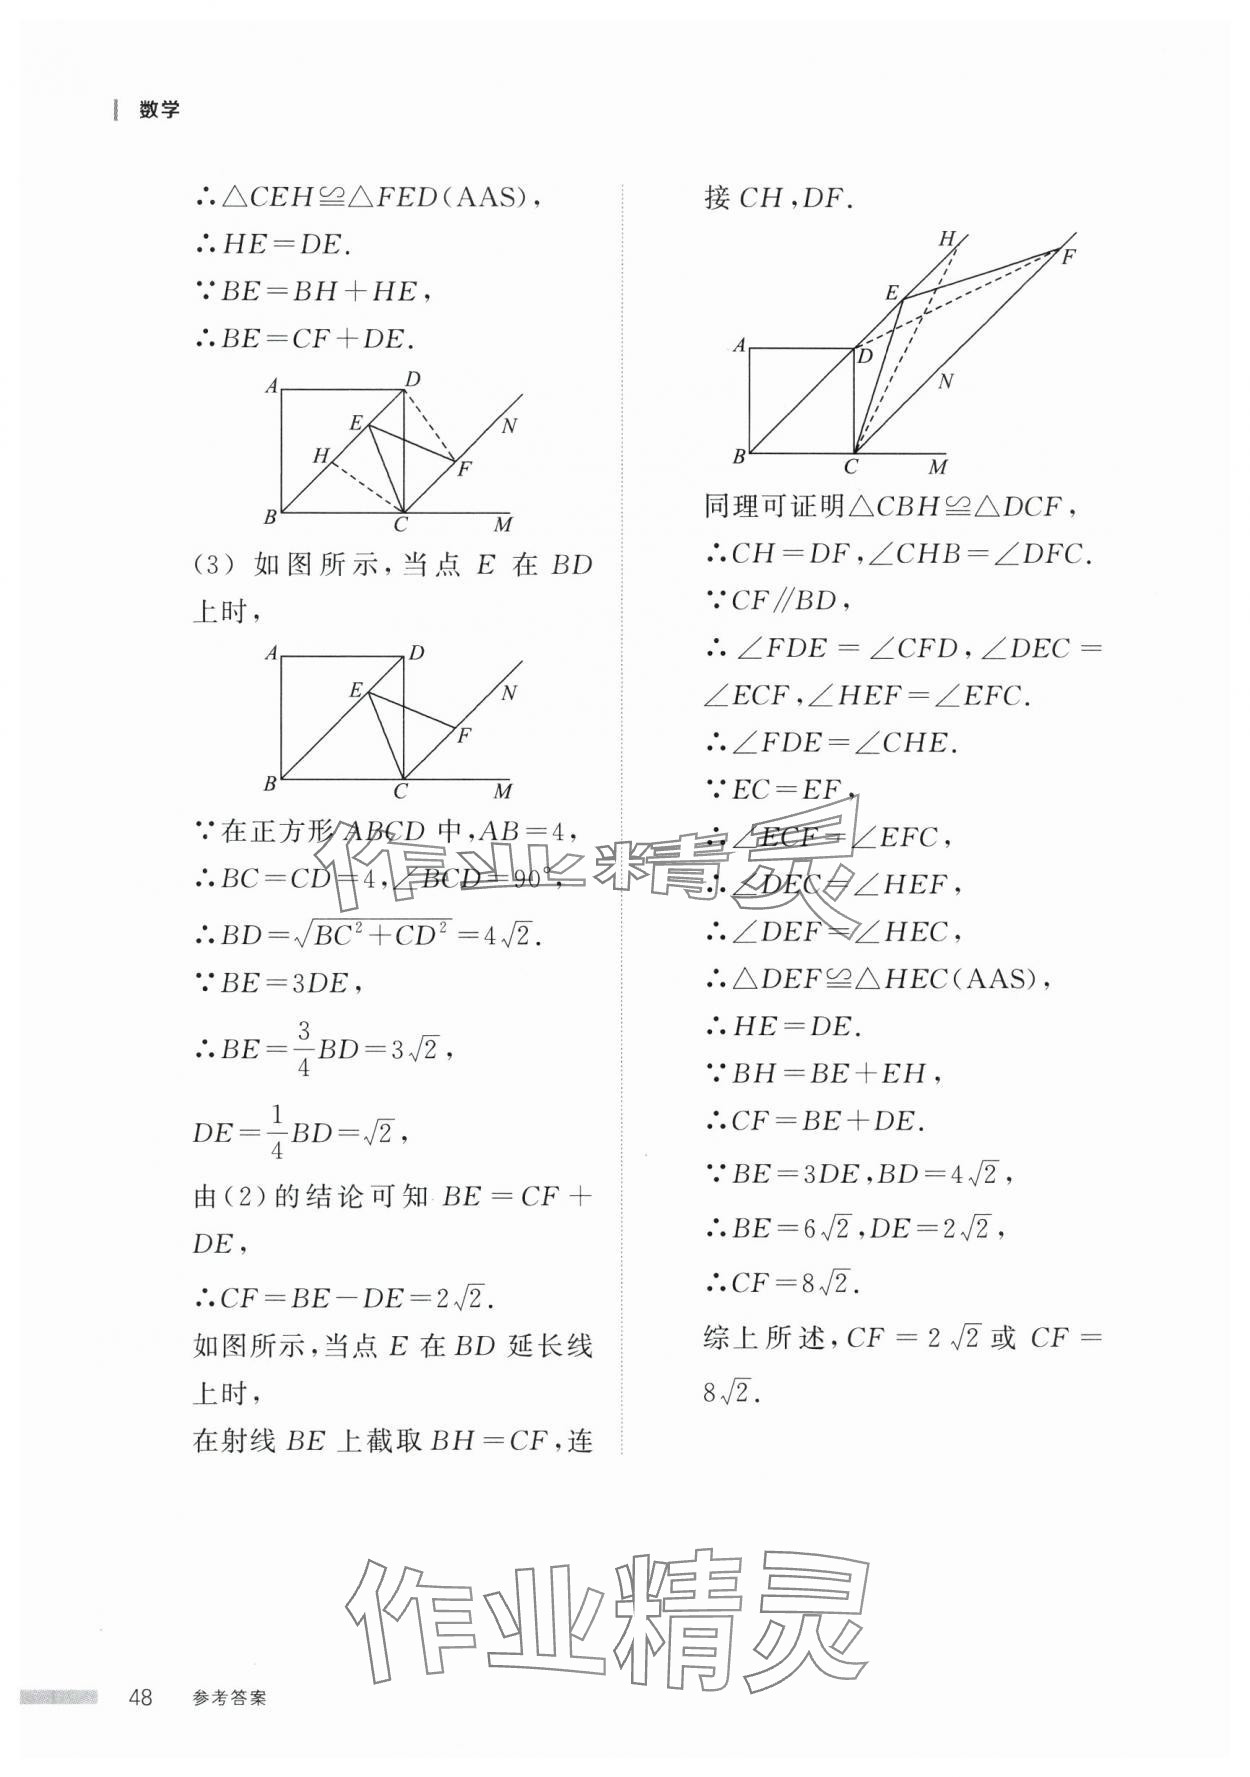 数学
∴△CEH≌△FED(AAS),
∴HE=DE.
∵BE=BH+HE,
∴BE=CF+DE.
A
D
E
N
H
F
B
C
M
(3) 如图所示,当点 E 在 BD
上时,
A
D
E
N
F
B
C
M
∵在正方形 ABCD 中,AB=4,
∴BC=CD=4,∠BCD=90°,
∴BD=√(BC²+CD²)=4√2.
∵BE=3DE,
∴BE=3/4BD=3√2,
DE=1/4BD=√2,
由(2)的结论可知 BE=CF+
DE,
∴CF=BE-DE=2√2.
如图所示,当点 E 在 BD 延长线
上时,
在射线 BE 上截取 BH=CF,连
接 CH,DF.
H
F
E
A
D
N
B
C
M
同理可证明△CBH≌△DCF,
∴CH=DF,∠CHB=∠DFC.
∵CF∥BD,
∴∠FDE=∠CFD,∠DEC=
∠ECF,∠HEF=∠EFC.
∴∠FDE=∠CHE.
∵EC=EF,
∴∠ECF=∠EFC,
∴∠DEC=∠HEF,
∴∠DEF=∠HEC,
∴△DEF≌△HEC(AAS),
∴HE=DE.
∵BH=BE+EH,
∴CF=BE+DE.
∵BE=3DE,BD=4√2,
∴BE=6√2,DE=2√2,
∴CF=8√2.
综上所述,CF=2√2或 CF=
8√2.
作业精灵
作业精灵
48 参考答案